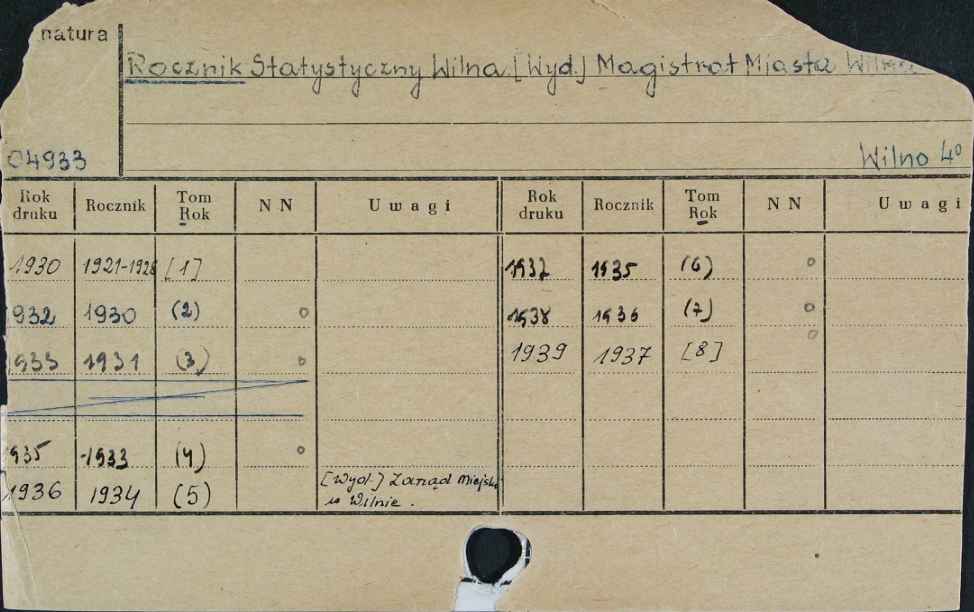 natura
Rocznik Statystyczny Wilna [Wyd.] Magistrat Miasta Wilna
04933
Wilno 4°
Rok druku Rocznik Tom Rok NN Uwagi Rok druku Rocznik Tom Rok NN Uwagi
1930 1921-1928 [1] 1937 1935 (6) o
1932 1930 (2) o 1938 1936 (7) o
1933 1931 (3) o 1939 1937 [8] o
935 1933 (4) o
1936 1934 (5) [Wyd.] Zarząd Miejski
w Wilnie.